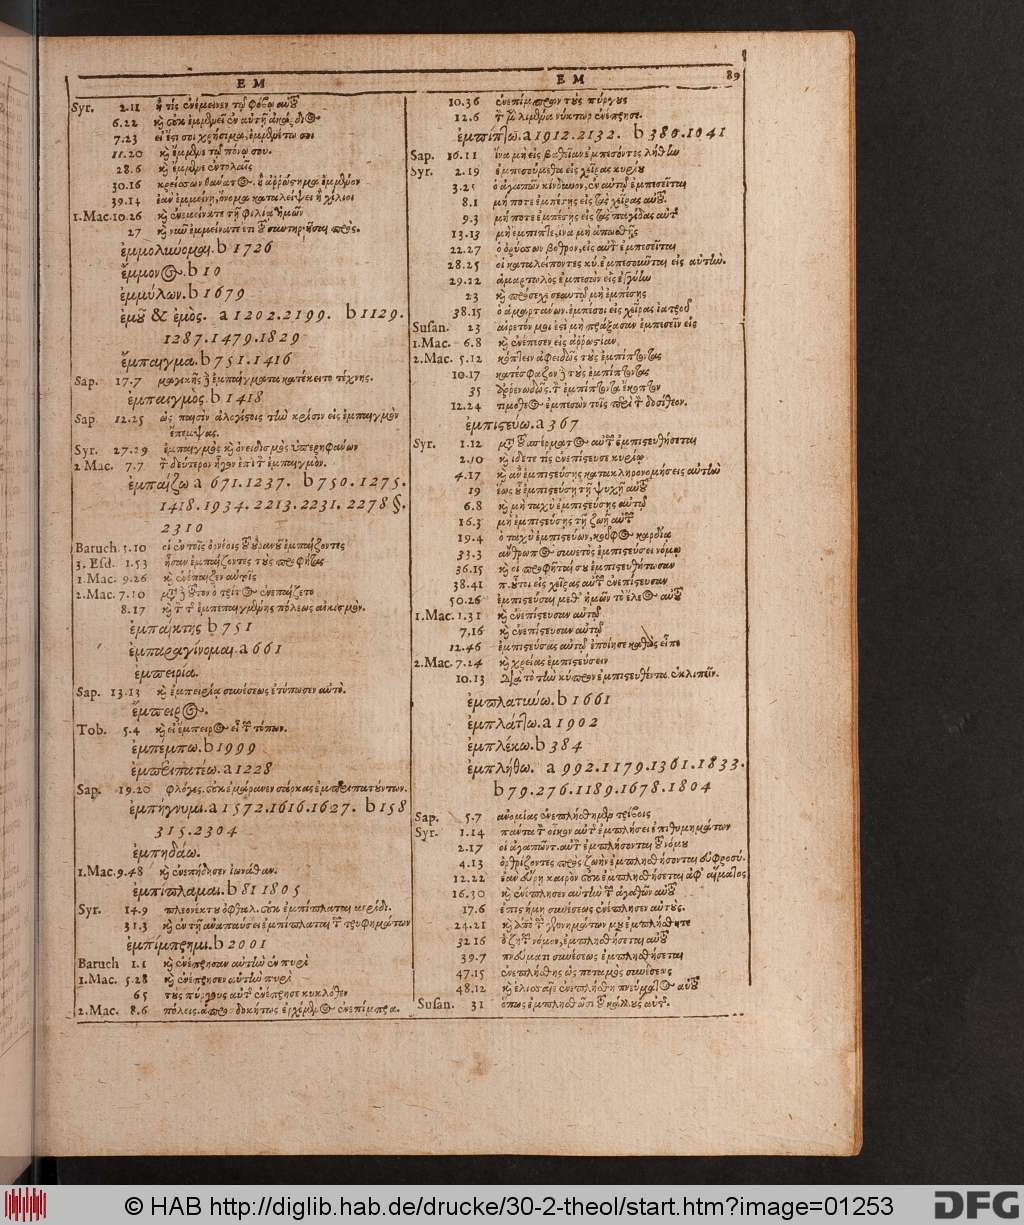 E M
E M
89
Syr. 2.11 ἢ τίς ἐνέμεινεν τῷ φόβῳ αὐτοῦ
6.22 καὶ οὐκ ἐμμενεῖ ἐν αὐτῇ
7.23 εἰ ἔστι σοι χρήσιμα, ἐμμενέτω σοι
11.20 καὶ ἔμμενε τῷ πόνῳ σου.
28.6 καὶ ἔμμενε ἐντολαῖς
30.16 κρείσσων θάνατος ἢ ἀρρώστημα ἔμμονον
39.14 ἐὰν ἐμμείνῃ, ὄνομα καταλείψει ἢ χίλιοι
1.Mac. 10.26 καὶ ἐνεμείνατε τῇ φιλίᾳ ἡμῶν
27 καὶ νῦν ἐμμείνατε ἔτι τοῦ συντηρῆσαι πρὸς.
ἐμμολύνομαι. b 1726
ἔμμονος. b 10
ἐμμύλων. b 1679
ἐμοῦ & ἐμὸς. a 1202.2199. b 1129.
1287.1479.1829
ἔμπαιγμα. b 751.1416
Sap. 17.7 μαγικῆς δὲ ἐμπαίγματα κατέκειτο τέχνης.
ἐμπαιγμὸς. b 1418
Sap. 12.25 ὡς παισὶν ἀλογίστοις τὴν κρίσιν εἰς ἐμπαιγμὸν
ἔπεμψας.
Syr. 27.29 ἐμπαιγμὸς καὶ ὀνειδισμὸς ὑπερηφάνων
2 Mac. 7.7 τὸν δεύτερον ἦγον ἐπὶ τὸν ἐμπαιγμὸν.
ἐμπαίζω a 671.1237. b 750.1275.
1418.1934.2213.2231.2278 §.
2310
Baruch 3.10 οἱ ἐν τοῖς ὀρνέοις τοῦ οὐρανοῦ ἐμπαίζοντες
3. Esd. 1.53 ἦσαν ἐμπαίζοντες τοὺς προφήτας
1.Mac. 9.26 καὶ ἐνέπαιζεν αὐτοῖς
2.Mac. 7.10 μετὰ δὲ τοῦτον ὁ τρίτος ἐνεπαίζετο
8.17 καὶ τὸν τῆς ἐμπεπαιγμένης πόλεως αἰκισμὸν.
ἐμπαίκτης b 751
ἐμπαραγίνομαι. a 661
ἐμπειρία.
Sap. 13.13 καὶ ἐμπειρίᾳ συνέσεως ἐτύπωσεν αὐτὸ.
ἔμπειρος.
Tob. 5.4 καὶ εἰ ἔμπειρος εἶ τῶν τόπων.
ἐμπέμπω. b 1999
ἐμπεριπατέω. a 1228
Sap. 19.20 φλόγες, οὐκ ἐμάραναν σάρκας ἐμπεριπατούντων.
ἐμπήγνυμι. a 1572.1616.1627. b 158
315.2304
ἐμπηδάω.
1.Mac. 9.48 καὶ ἐνεπήδησεν ἰωνάθαν.
ἐμπίπλαμαι. b 81 1805
Syr. 14.9 πλεονέκτου ὀφθαλ. οὐκ ἐμπίπλαται μερίδι.
31.3 καὶ ἐν τῇ ἀναπαύσει ἐμπίπλαται τῶν τρυφημάτων
ἐμπίμπρημι. b 2001
Baruch 1.1 καὶ ἐνέπρησαν αὐτὴν ἐν πυρὶ
1.Mac. 5.28 καὶ ἐνέπρησεν αὐτὴν πυρὶ
65 τοὺς πύργους αὐτῆς ἐνέπρησε κυκλόθεν
2.Mac. 8.6 πόλεις. ἀπροσδοκήτως ἐρχόμενος ἐνεπίμπρα.
10.36 ἐνεπίμπρων τοὺς πύργους
12.6 τὸν μὲν λιμένα νύκτωρ ἐνέπρησε.
ἐμπίπτω. a 1912.2132. b 380.1041
Sap. 16.11 ἵνα μὴ εἰς βαθεῖαν ἐμπεσόντες λήθην
Syr. 2.19 ἐμπεσούμεθα εἰς χεῖρας κυρίου
3.25 ὁ ἀγαπῶν κίνδυνον, ἐν αὐτῷ ἐμπεσεῖται
8.1 μή ποτε ἐμπέσῃς εἰς τὰς χεῖρας αὐτοῦ.
9.3 μή ποτε ἐμπέσῃς εἰς τὰς παγίδας αὐτῆς
13.13 μὴ ἔμπιπτε, ἵνα μὴ ἀπωσθῇς
22.27 ὁ ὀρύσσων βόθρον, εἰς αὐτὸν ἐμπεσεῖται
28.25 οἱ καταλείποντες κύ. ἐμπεσοῦνται εἰς αὐτὴν.
29.22 ἁμαρτωλὸς ἐμπεσὼν εἰς ἐγγύην
23 καὶ πρόσεχε σεαυτῷ μὴ ἐμπέσῃς
38.15 ὁ ἁμαρτάνων. ἐμπέσοι εἰς χεῖρας ἰατροῦ
Susan. 23 αἱρετὸν μοι ἐστὶ μὴ πράξασαν ἐμπεσεῖν εἰς
1.Mac. 6.8 καὶ ἐνέπεσεν εἰς ἀρρωστίαν.
2.Mac. 5.12 κόπτειν ἀφειδῶς τοὺς ἐμπίπτοντας
10.17 κατέσφαζον δὲ τοὺς ἐμπίπτοντας
35 τὸν ἐμπίπτοντα ἔκοπτον
12.24 τιμόθεος ἐμπεσὼν τοῖς περὶ τὸν δοσίθεον.
ἐμπιστεύω. a 367
Syr. 1.12 μετὰ τοῦ σπέρματος αὐτῶν ἐμπιστευθήσεται
2.10 καὶ ἴδετε τίς ἐνεπίστευσε κυρίῳ
4.17 καὶ ἂν ἐμπιστεύσῃς κατακληρονομήσεις αὐτὴν
19 ἕως οὗ ἐμπιστεύσῃ τῇ ψυχῇ αὐτοῦ
6.8 καὶ μὴ ταχὺ ἐμπιστεύσῃς αὐτῷ
16.3 μὴ ἐμπιστεύσῃς τῇ ζωῇ αὐτῶν
19.4 ὁ ταχὺ ἐμπιστεύων, κοῦφος καρδίᾳ
33.3 ἄνθρωπος συνετὸς ἐμπιστεύσοι νόμῳ
36.15 καὶ οἱ προφῆταί σου ἐμπιστευθήτωσαν
38.41 π. οὗτοι εἰς χεῖρας αὐτῶν ἐνεπίστευσαν
50.26 ἐμπιστεῦσαι μεθ' ἡμῶν τὸ ἔλεος αὐτοῦ
1.Mac. 1.31 καὶ ἐνεπίστευσαν αὐτῷ
7.16 καὶ ἐνεπίστευσαν αὐτῷ
12.46 ἐμπιστεύσας αὐτῷ ἐποίησε καθὼς εἶπε
2.Mac. 7.24 καὶ χρείας ἐμπιστεύσειν
10.13 διὰ τὸ τὴν κύπρον ἐμπιστευθέντα. ἐκλιπεῖν.
ἐμπλατύνω. b 1661
ἐμπλάττω. a 1902
ἐμπλέκω. b 384
ἐμπλήθω. a 992.1179.1361.1833.
b 79.276.1189.1678.1804
Sap. 5.7 ἀνομίας ἐνεπλήσθημεν τρίβοις
Syr. 1.14 πάντα τὸν οἶκον αὐτῶν ἐμπλήσει ἐπιθυμημάτων
2.17 οἱ ἀγαπῶντ. αὐτὸν ἐμπλήσονται τοῦ νόμου
4.13 ὀρθρίζοντες πρὸς ζωὴν ἐμπλησθήσονται εὐφροσύ.
12.22 ἐὰν εὕρῃ καιρὸν οὐκ ἐμπλησθήσεται ἀφ' αἵματος
16.30 καὶ ἐνέπλησεν αὐτὴν τῶν ἀγαθῶν αὐτοῦ
17.6 ἐπιστήμῃ συνέσεως ἐνέπλησεν αὐτοὺς.
24.21 καὶ ἀπὸ τῶν γεννημάτων μου ἐμπλήσθητε
32.16 ὁ ζητῶν νόμον, ἐμπλησθήσεται αὐτοῦ
39.7 πνεύματι συνέσεως ἐμπλησθήσεται
47.15 ἐνεπλήσθης ὡς ποταμὸς συνέσεως
48.12 καὶ ἑλισσαιὲ ἐνεπλήσθη πνεύματος αὐτοῦ
Susan. 31 ὅπως ἐμπλησθῶσι τοῦ κάλλους αὐτῆς.
© HAB http://diglib.hab.de/drucke/30-2-theol/start.htm?image=01253
DFG